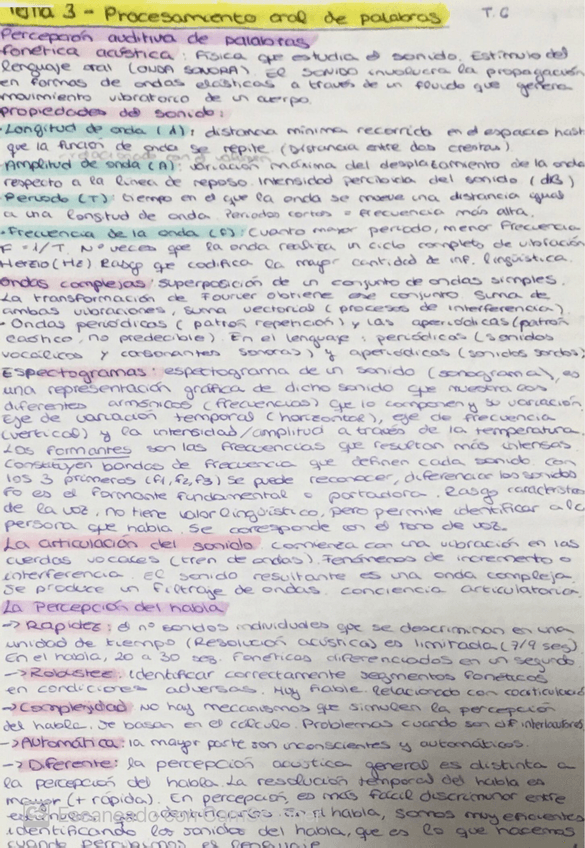 Tema 3 - Procesamiento oral de palabras T.G
Percepción auditiva de palabras
Fonética acústica: Física que estudia el sonido. Estímulo del
lenguaje oral (ONDA SONORA). El SONIDO involucra la propagación
en formas de ondas elásticas a través de un fluido que genera
movimiento vibratorio de un cuerpo.
Propiedades del sonido:
·Longitud de onda (λ): distancia mínima recorrida en el espacio hast
que la función de onda se repite (Distancia entre dos crestas).
relacionado con el volumen
·Amplitud de onda (A): variación máxima del desplazamiento de la onda
respecto a la línea de reposo. Intensidad percibida del sonido (dB)
Periodo (T): tiempo en el que la onda se mueve una distancia igual
a una longitud de onda. Periodos cortos = frecuencia más alta.
·Frecuencia de la onda (F): cuanto mayor periodo, menor frecuencia
F = 1/T. Nº veces que la onda realiza un ciclo completo de vibración
Herzio (Hz) Rasgo que codifica la mayor cantidad de inf. lingüística.
Ondas complejas: superposición de un conjunto de ondas simples.
La transformación de Fourier obtiene ese conjunto. Suma de
ambas vibraciones, suma vectorial (procesos de interferencia).
· Ondas periódicas (patrón repetición) y las aperiódicas (patrón
caótico, no predecible). En el lenguaje: periódicas (sonidos
vocálicos y consonantes sonoras) y aperiódicas (sonidos sordos)
Espectogramas: espectograma de un sonido (sonograma), es
una representación gráfica de dicho sonido que muestra los
diferentes armónicos (frecuencias) que lo componen y su variación.
Eje de variación temporal (horizontal), eje de frecuencia
(vertical) y la intensidad/amplitud a través de la temperatura.
Los formantes son las frecuencias que resultan más intensas.
Constituyen bandas de frecuencia que definen cada sonido. Con
los 3 primeros (f1, f2, f3) se puede reconocer, diferenciar los sonidos
F0 es el formante fundamental o portadora. Rasgo característ
de la voz, no tiene valor lingüístico, pero permite identificar a la
persona que habla. Se corresponde con el tono de voz.
La articulación del sonido comienza con una vibración en las
cuerdas vocales (tren de ondas). Fenómenos de incremento o
interferencia. El sonido resultante es una onda compleja.
Se produce un filtraje de ondas. conciencia articulatoria.
La Percepción del habla
-> Rapidez: el nº sonidos individuales que se discriminan en una
unidad de tiempo (Resolución acústica) es limitada (7/9 seg)
En el habla, 20 a 30 seg. fonéticos diferenciados en un segundo
-> Robustez: identificar correctamente segmentos fonéticos
en condiciones adversas. Muy fiable. Relacionado con
-> Complejidad No hay mecanismos que simulen la percepción
del habla. Se basan en el cálculo. Problemas cuando son dif. interlocutores
-> Automática: la mayor parte son inconscientes y automáticos.
-> Diferente: la percepción acústica general es distinta a
la percepción del habla. La resolución temporal del habla es
mayor (+ rápida). En percepción, es más fácil discriminar entre
Escaneado con habla, somos muy eficientes
identificando los sonidos del habla, que es lo que hacemos
cuando percibimos el lenguaje